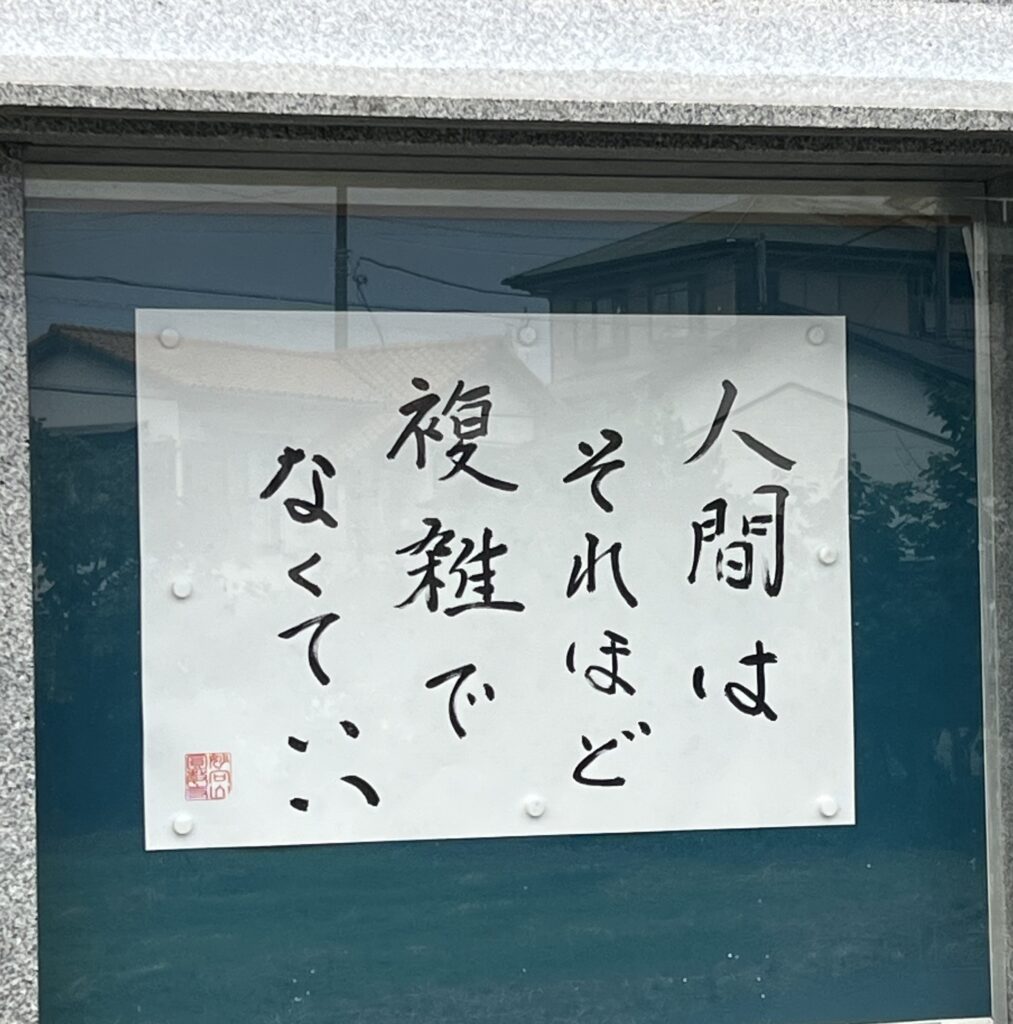 人間は
それほど
複雑で
なくていい